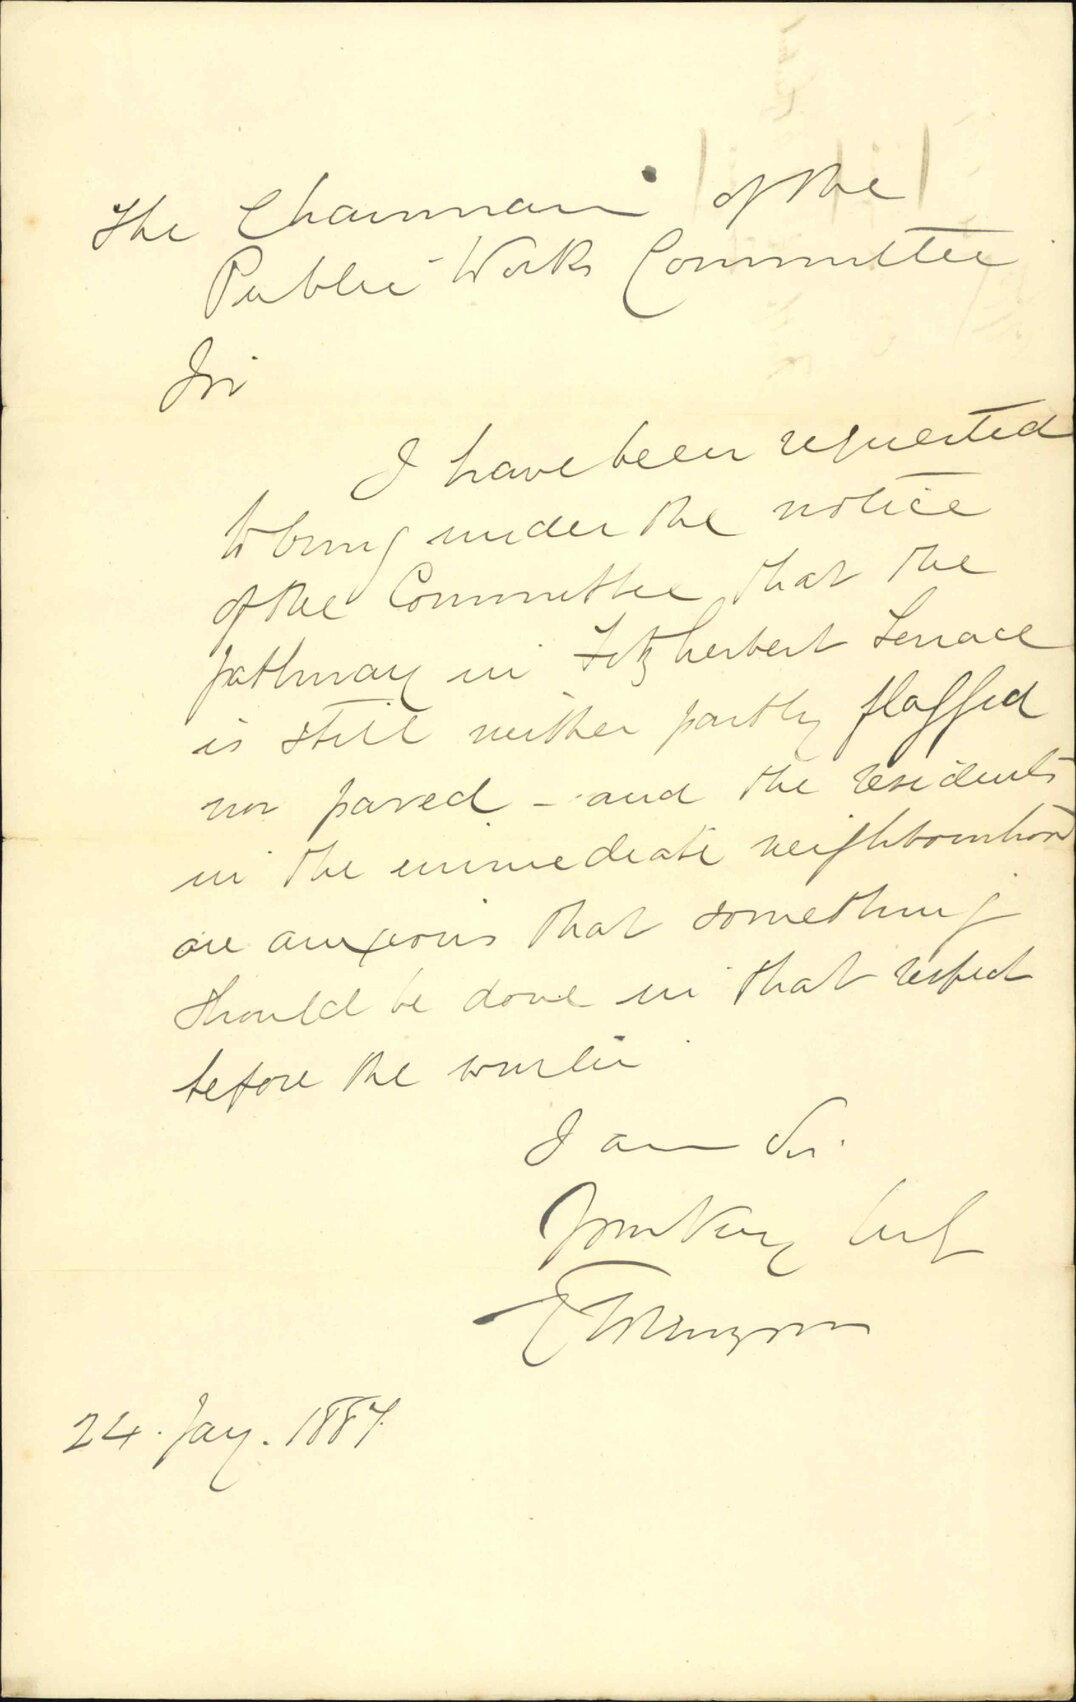 The Chairman of the
Public Works Committee
Sir
I have been requested
to bring under the notice
of the Committee that the
pathway in Fitzherbert Terrace
is still neither partly flagged
nor paved - and the residents
in the immediate neighbourhood
are anxious that something
should be done in that respect
before the winter
I am Sir
Your
24. Jany. 1887